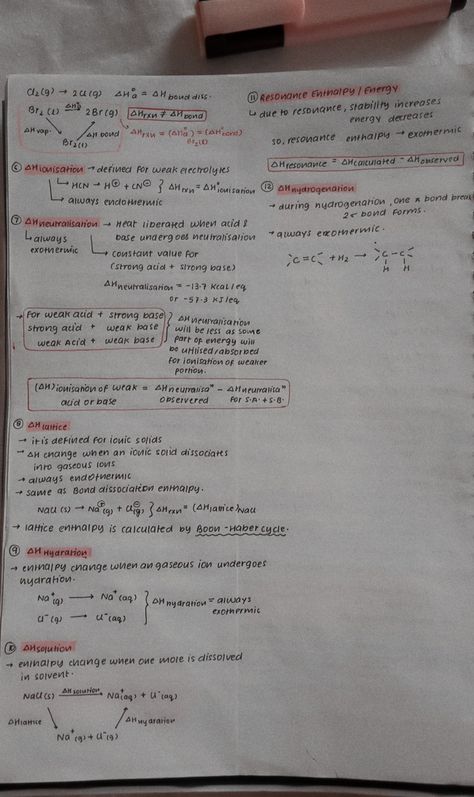 Cl₂(g) → 2Cl(g) ΔH°a = ΔH bond diss.
Br₂(l) → 2Br(g) ΔHrxn ≠ ΔHbond
ΔHvap. ΔH bond
Br₂(l)
⑥ ΔHionisation → defined for weak electrolytes
↳ HCN → H⊕ + CN⊖ } ΔHrxn = ΔH°ionisation
↳ always endothermic
⑦ ΔHneutralisation → Heat liberated when acid &
↳ always base undergoes neutralisation
exothermic ↳ constant value for
(strong acid + strong base)
ΔHneutralisation = -13.7 kcal/eq
or -57.3 kJ/eq
→ For weak acid + strong base } ΔHneutralisation
strong acid + weak base will be less as some
weak Acid + weak base part of energy will
be utilised/absorbed
for ionisation of weaker
portion.
(ΔH)ionisation of weak = ΔHneutralisaⁿ - ΔHneutralisaⁿ
acid or base observered for S.A. + S.B.
⑧ ΔHlattice
→ it is defined for ionic solids
→ ΔH change when an ionic solid dissociates
into gaseous ions
→ always endothermic
→ same as Bond dissociation enthalpy.
NaCl(s) → Na⊕(g) + Cl⊖(g) } ΔHrxn = (ΔHlattice)NaCl
→ lattice enthalpy is calculated by Boon-Haber cycle.
⑨ ΔHHydration
→ enthalpy change when an gaseous ion undergoes
hydration.
Na⁺(g) → Na⁺(aq) } ΔHhydration = always
Cl⁻(g) → Cl⁻(aq) exothermic
⑩ ΔHsolution
→ enthalpy change when one mole is dissolved
in solvent.
NaCl(s) ΔHsolution → Na⁺(aq) + Cl⁻(aq)
ΔHlattice ΔHhydration
Na⁺(g) + Cl⁻(g)
⑪ Resonance Enthalpy/Energy
↳ due to resonance, stability increases
energy decreases
so, resonance enthalpy → exothermic
ΔHresonance = ΔHcalculated - ΔHobserved
⑫ ΔHhydrogenation
→ during hydrogenation, one π bond break
2σ bond forms.
→ always exothermic.
C=C + H₂ → C-C
H H